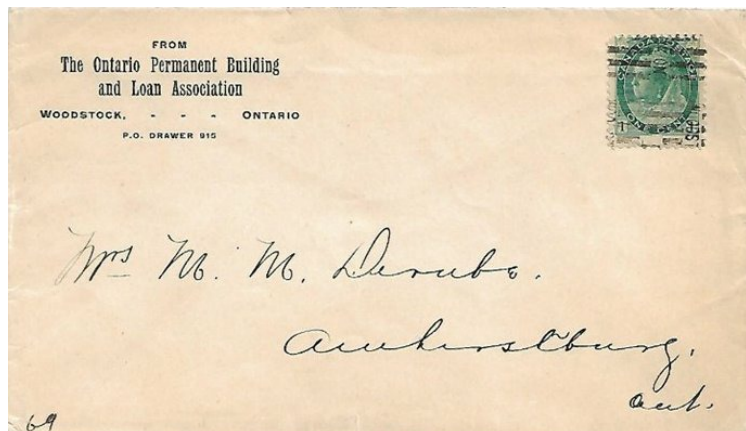 FROM
The Ontario Permanent Building
and Loan Association
WOODSTOCK, - - - ONTARIO
P.O. DRAWER 915
CANADA POSTAGE
ONE CENT
1
Mrs M. M.
Amherstburg.
Ont.
69